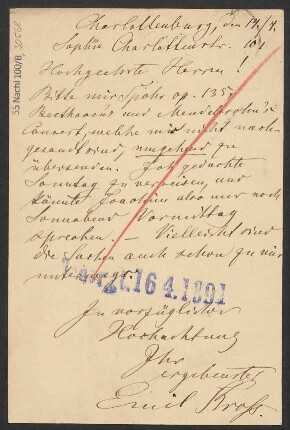 55 Nachl 100/B, 30568
Charlottenburg, den 14/4.
Sophie Charlottenstr. 101
Hochgeehrte Herren!
Bitte mir Spohr op. 135.
Beethoven's und Mendelssohn's
Concert, welche mir nicht nach-
gesandt sind, umgehend zu
übersenden. Ich gedachte
Sonntag zu verreisen, und
könnte Joachim also nur noch
Sonnabend Vormittag
sprechen. – Vielleicht sind
die Sachen auch schon zu mir
unterwegs.
16 4. 1891
In vorzüglicher
Hochachtung
Ihr
ergebenster
Emil Kross.